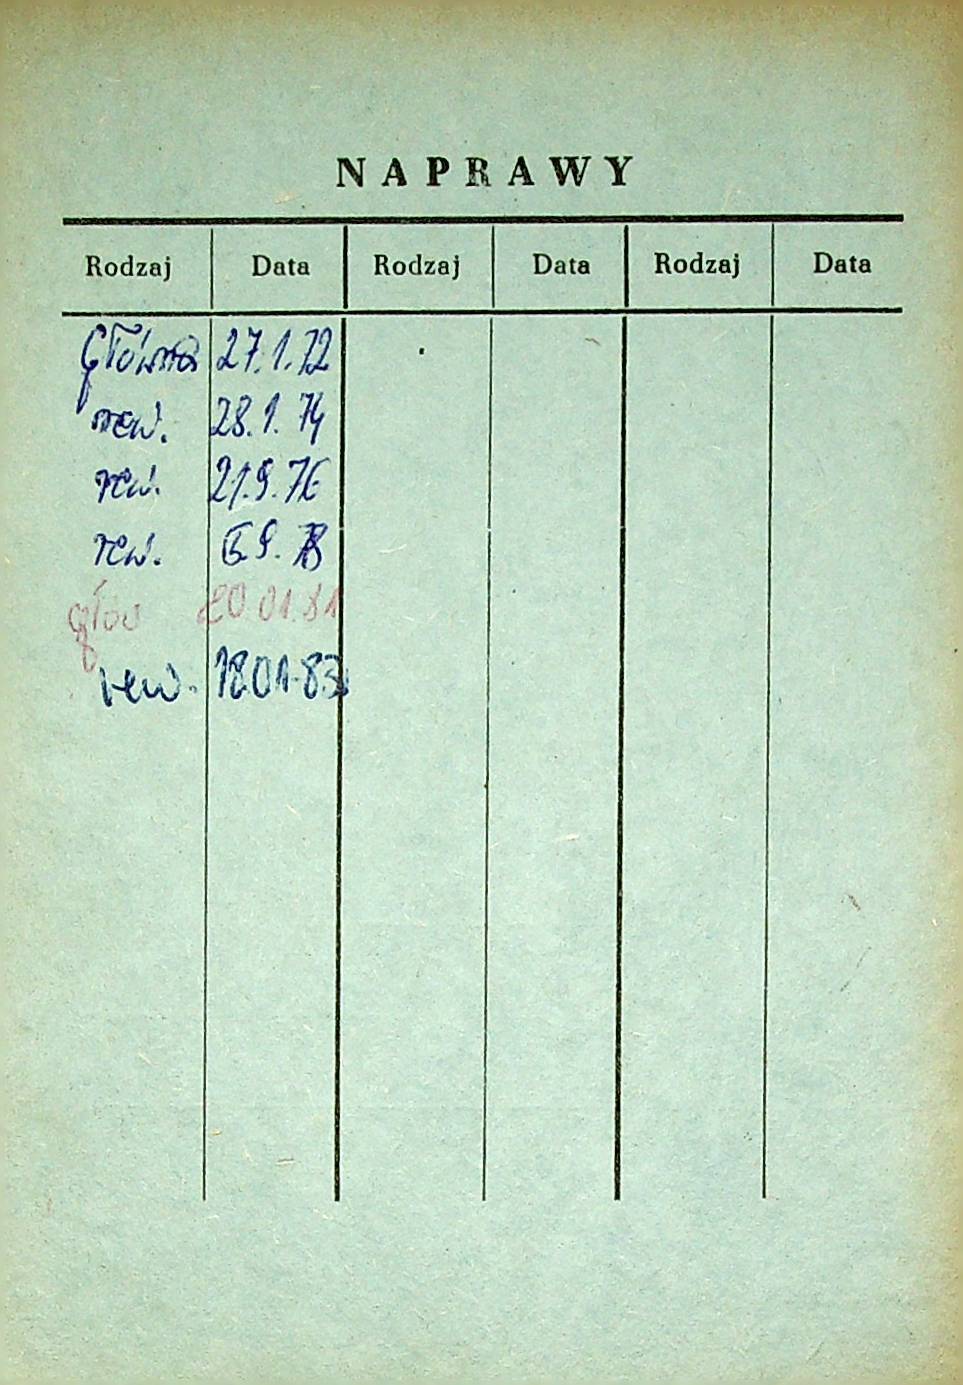 NAPRAWY
Rodzaj Data Rodzaj Data Rodzaj Data
główna 27.1.72
rew. 28.1.74
rew. 21.9.76
rew. 6.9.78
głów 20 01.81
rew. 18.01.83